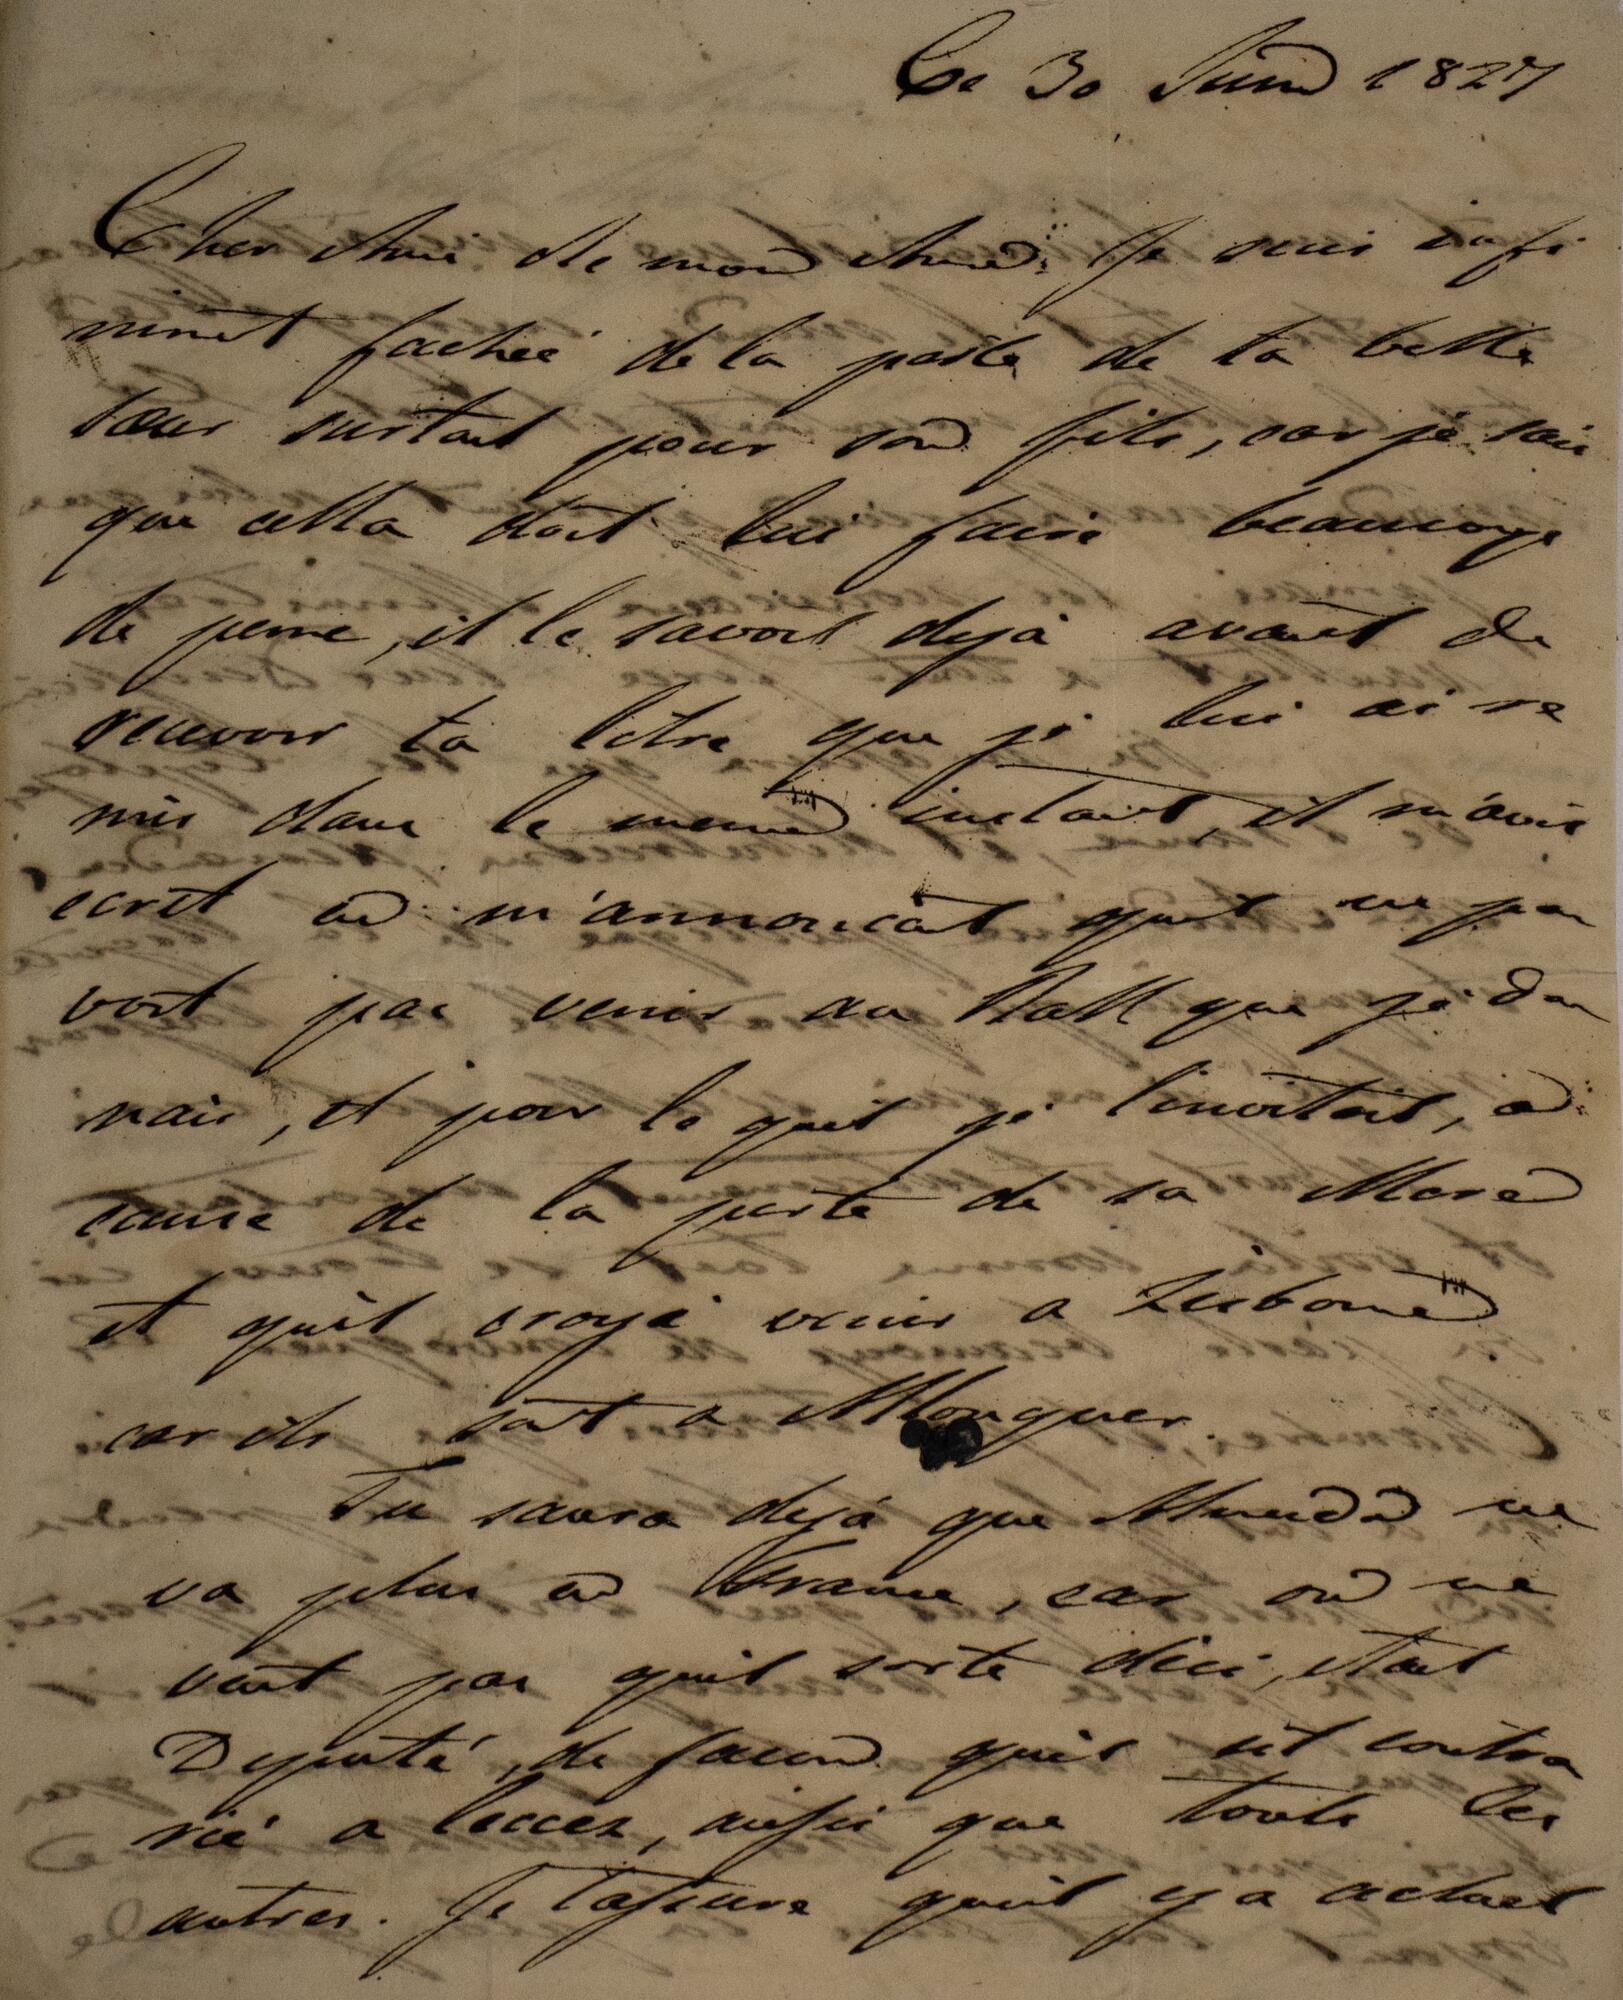 Ce 30 Juin 1827
Cher Ami de mon Ame. Je suis infi
nimẽt fachée de la perte de ta belle
sœur surtout pour son fils, car je sais
que cella doit lui faire beaucoup
de peine, il le savoit dejá avañt de
recevoir ta letre que je lui ai re
mis dans le meme instañt, il m'avis
ecrit en m'annoncãt quil ne pou
voit pas venir au Ball que je don
nais, et pour le quel je l'invitais, a
cause de la perte de sa Mere
et quil croyé venir a Lisbonne
car ils sõt a Mlonguer.
Tu saura dejá que Almeida ne
va plus en France, car on ne
veut pas quil sorte dici, etãt
Deputé, de facon quil ẽt contra
rié a lecces, ainsi que toute les
autres. Je tassure quil y a actuel